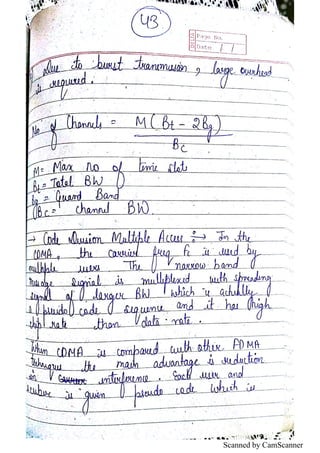 43
Page No.
Date / /
Due to burst transmission, large overhead
is required.
No of Channels = M(Bt - 2Bg)
Bc
M = Max no of time slots
Bt = Total BW
Bg = Guard Band
Bc = channel BW.
→ Code Division Multiple Access :→ In the
CDMA, the carrier freq Fc is used by
multiple users The narrow band
message signal is multiplexed with spreading
signal of larger BW which is actually
a pseudo code sequence and it has high
chip rate than data rate.
When CDMA is compared with other FDMA
Techniques the main advantage is reduction
in interference. Each user and
is given pseudo code which is
Scanned by CamScanner